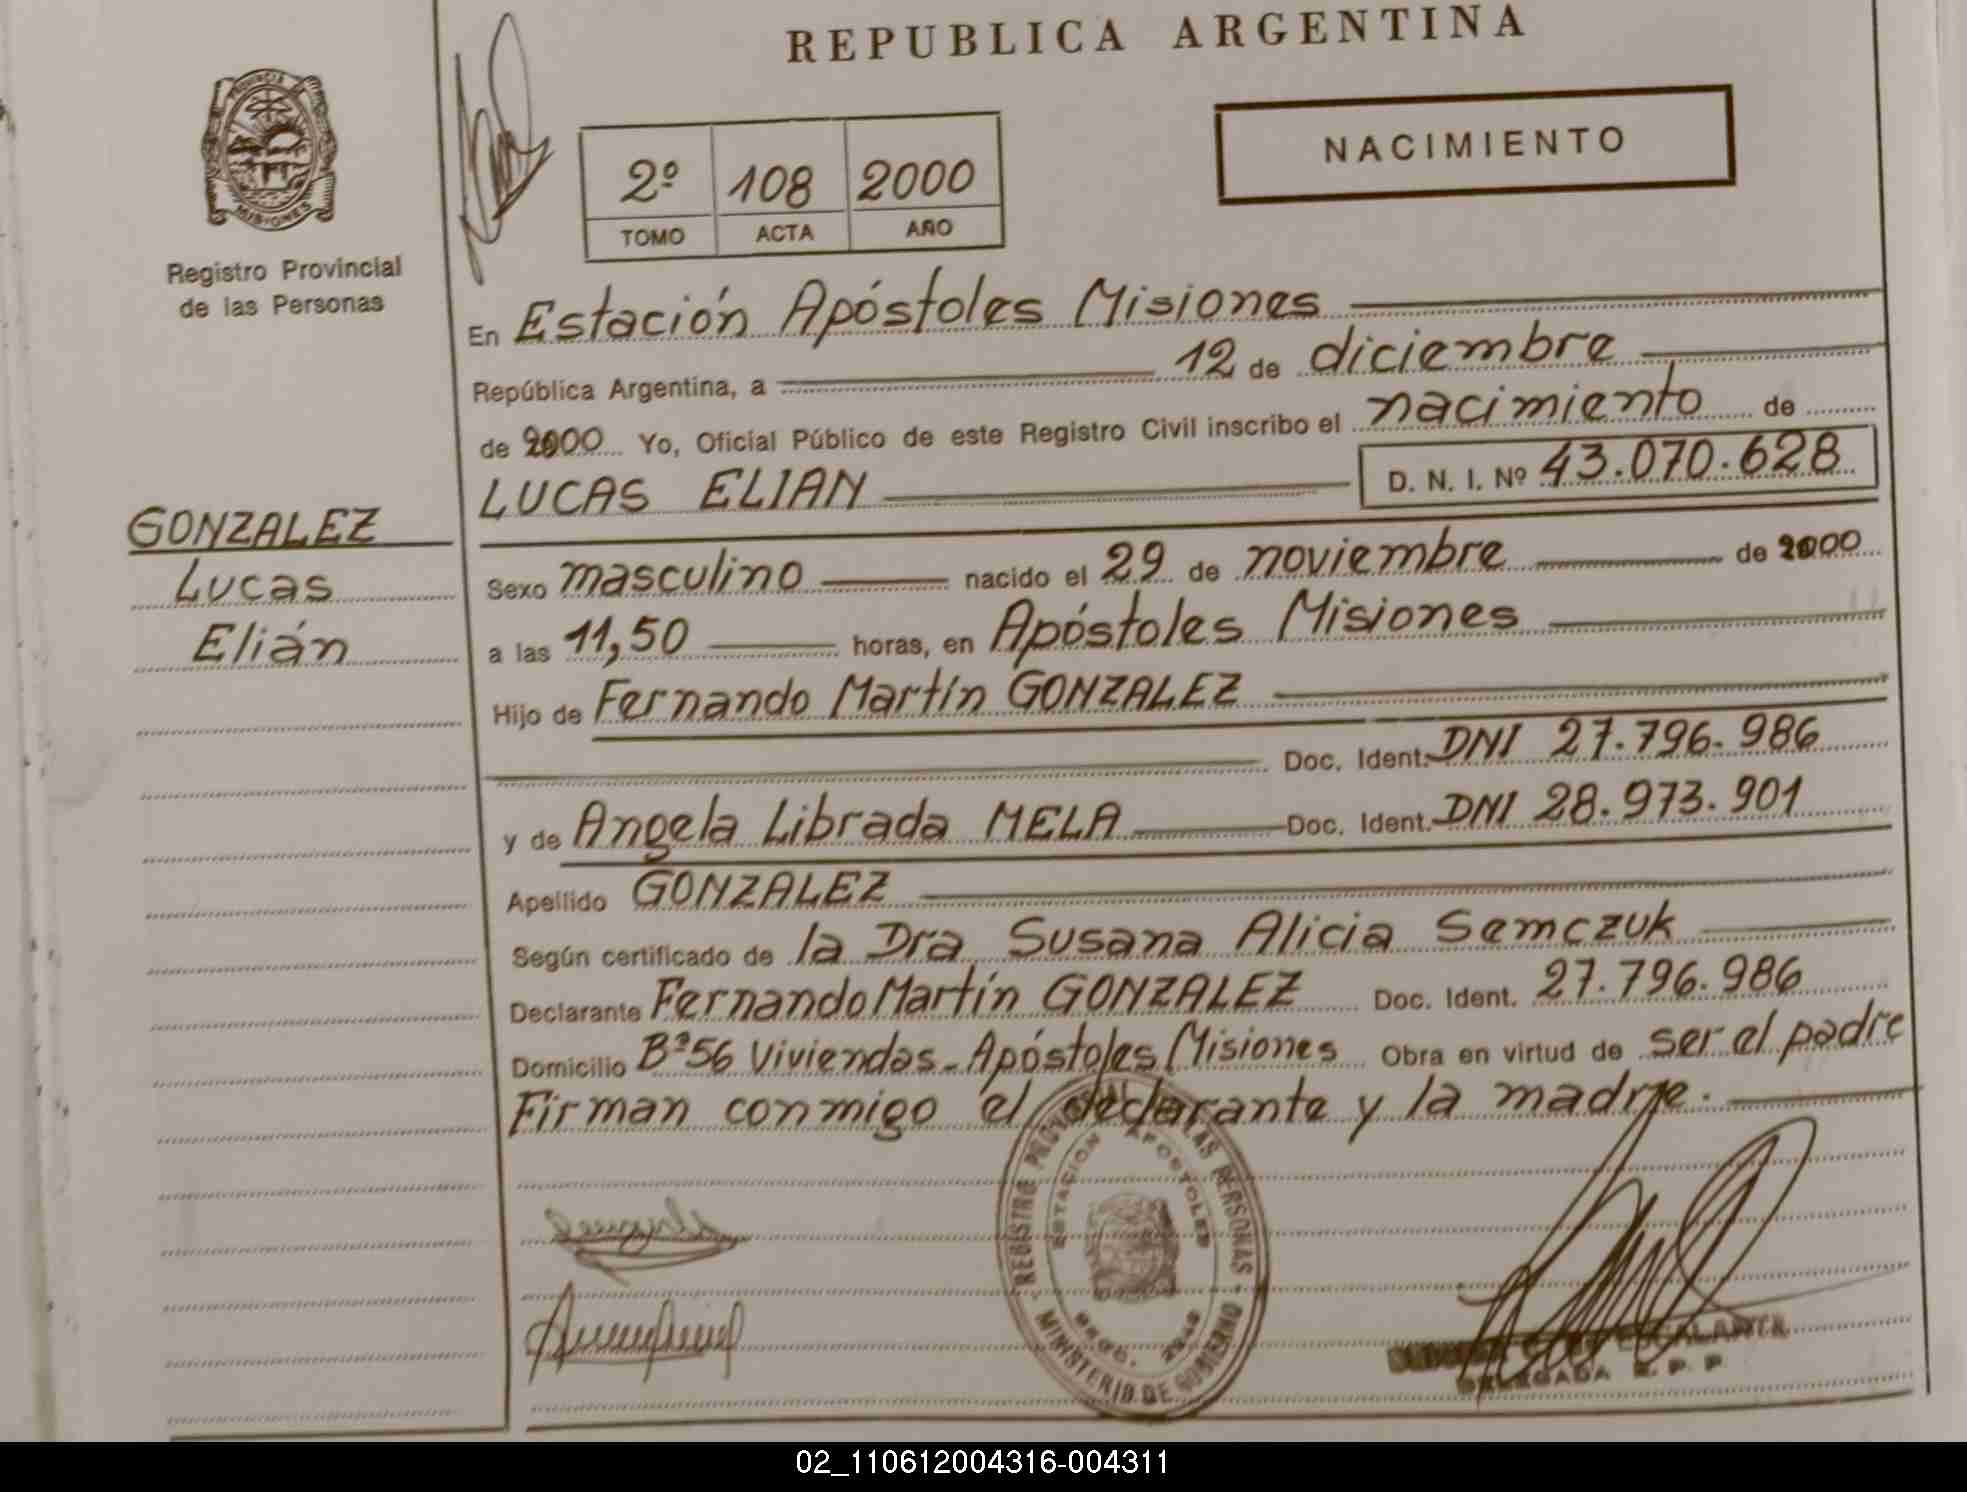 REPUBLICA ARGENTINA
PROVINCIA
MISIONES
Registro Provincial
de las Personas
NACIMIENTO
2º 108 2000
TOMO ACTA AÑO
En Estación Apóstoles Misiones
República Argentina, a 12 de diciembre
de 2000 Yo, Oficial Público de este Registro Civil inscribo el nacimiento de
LUCAS ELIAN D. N. I. Nº 43.070.628
GONZALEZ
Lucas
Elián
Sexo masculino nacido el 29 de noviembre de 2000
a las 11,50 horas, en Apóstoles Misiones
Hijo de Fernando Martín GONZALEZ
Doc. Ident. DNI 27.796.986
y de Angela Librada MELA Doc. Ident. DNI 28.973.901
Apellido GONZALEZ
Según certificado de la Dra Susana Alicia Semczuk
Declarante Fernando Martín GONZALEZ Doc. Ident. 27.796.986
Domicilio Bº 56 Viviendas - Apóstoles Misiones Obra en virtud de ser el padre
Firman conmigo el declarante y la madre.
REGISTRO PROVINCIAL DE LAS PERSONAS
ESTACION APOSTOLES
MINISTERIO DE GOBIERNO
ESCALANTE
DELEGADA R. P. P.
02_110612004316-004311